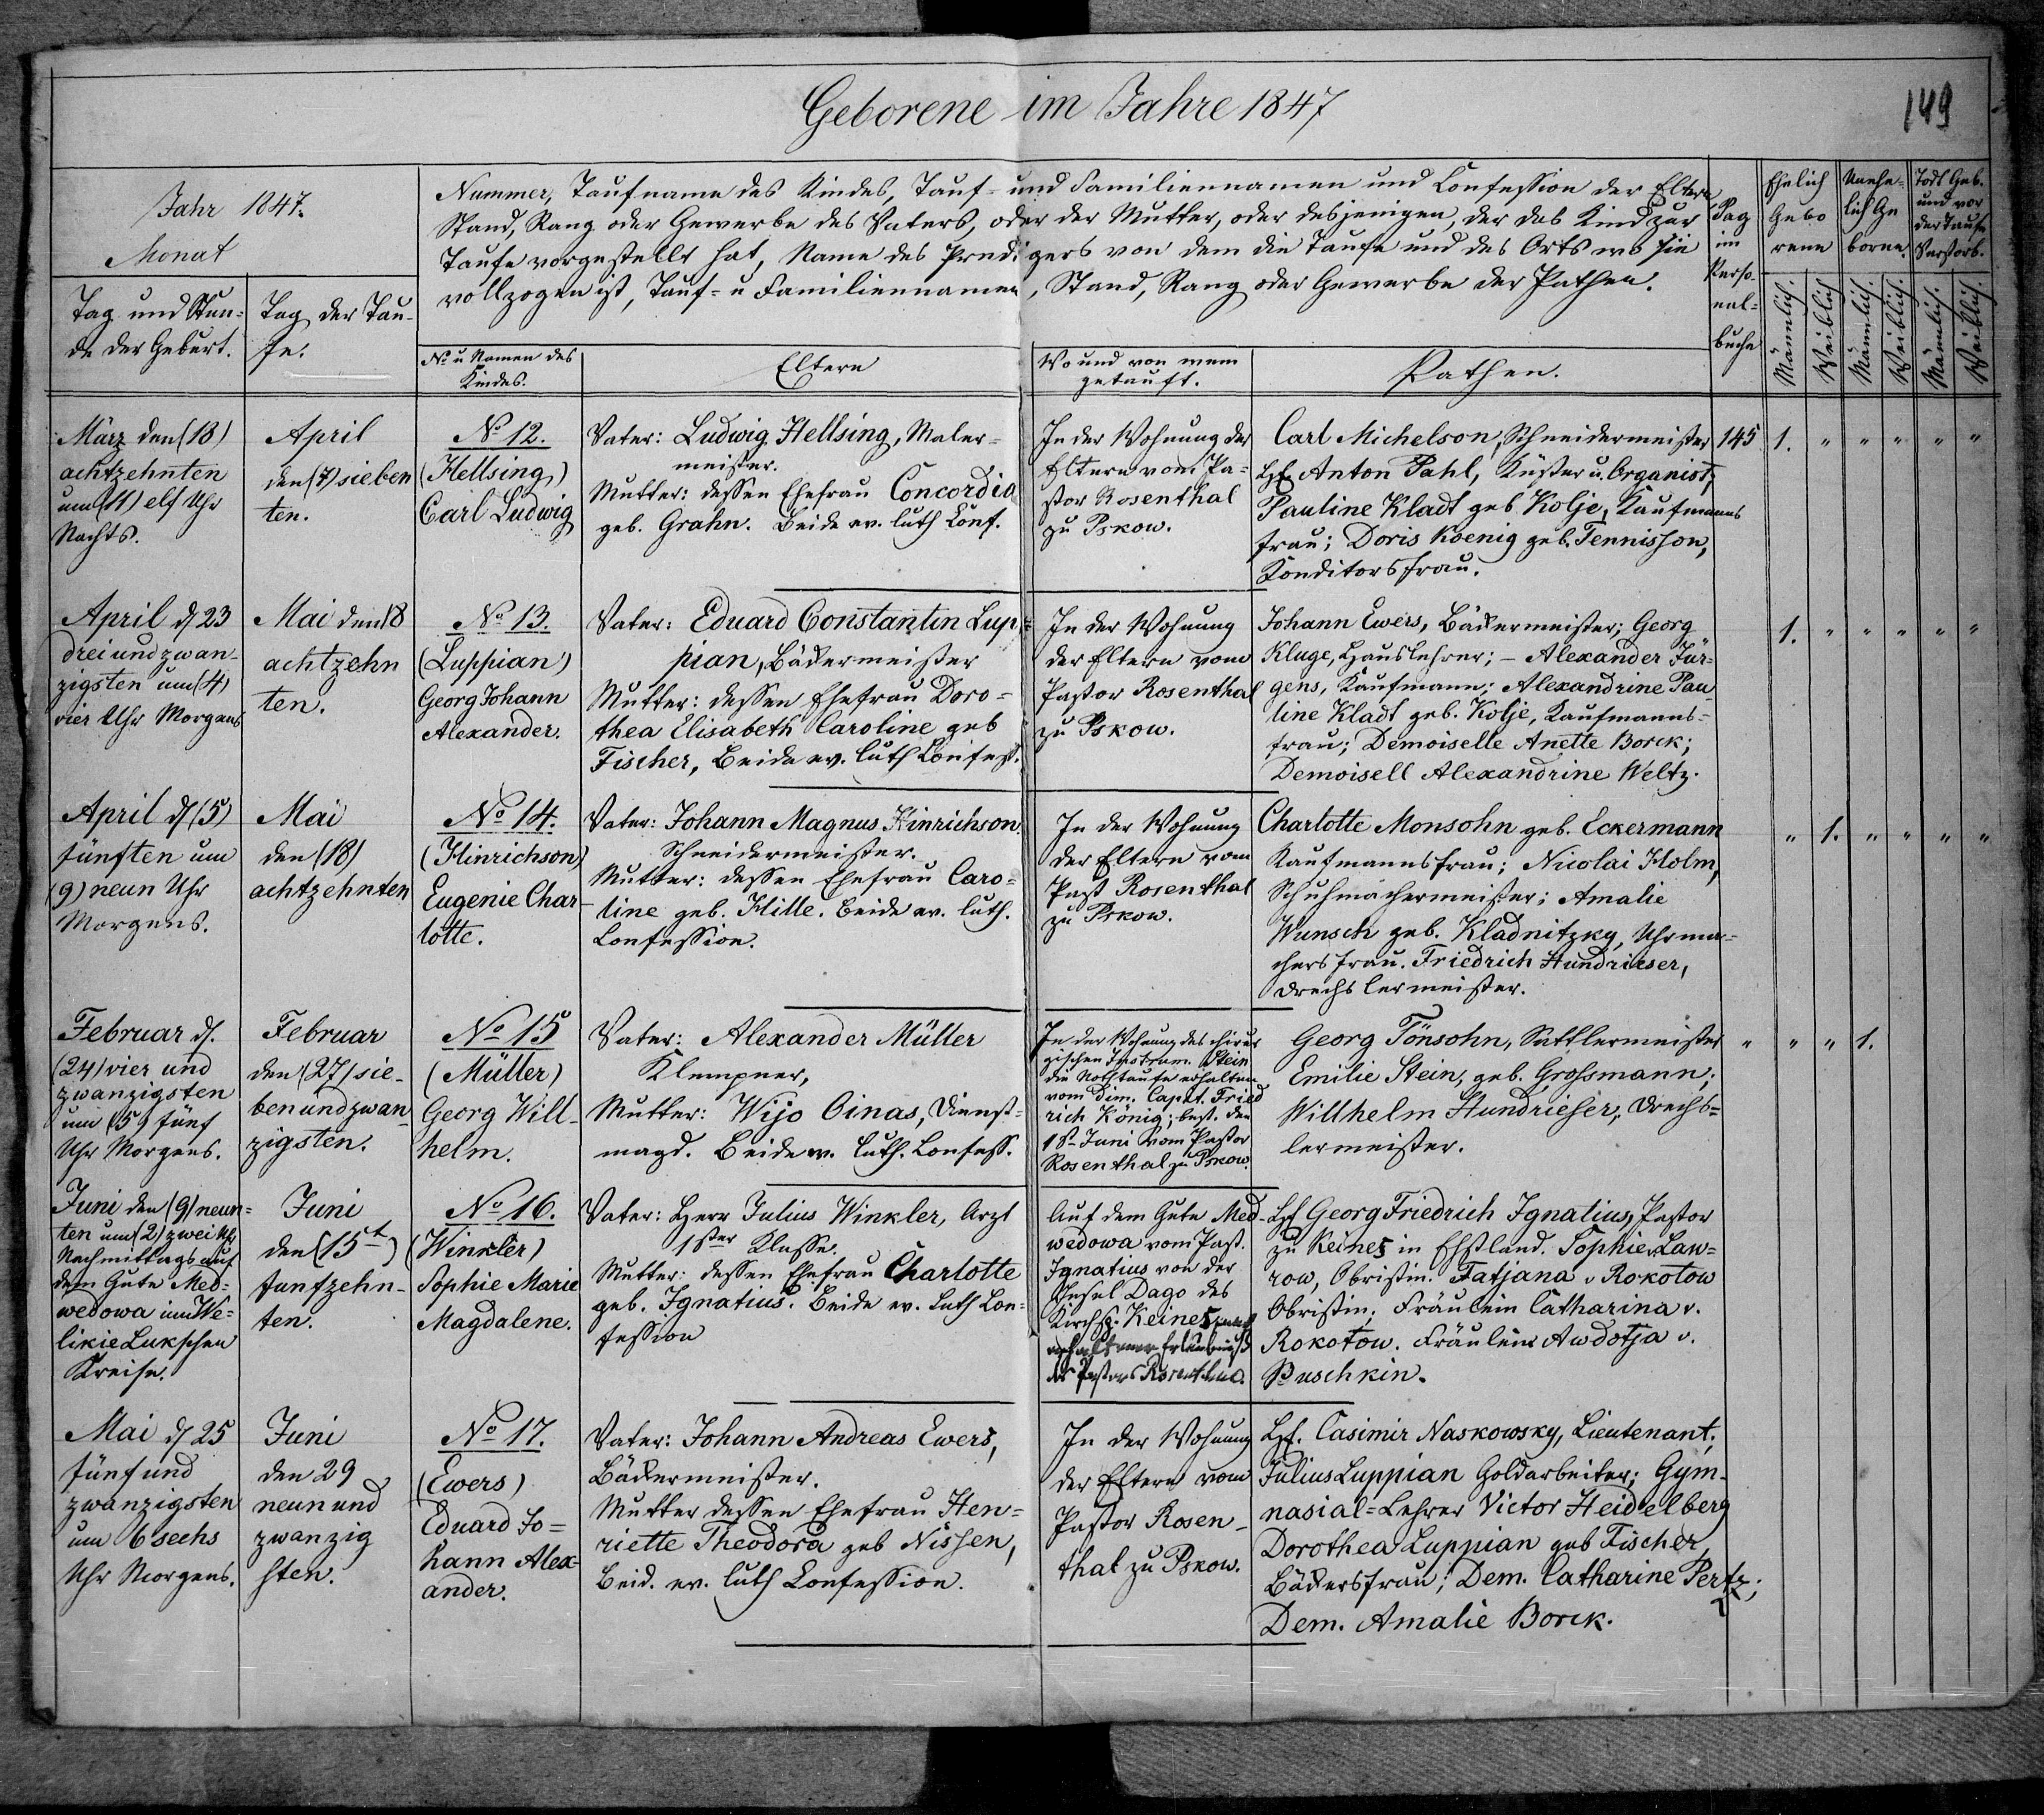 Geborene im Jahre 1847
149
Jahr 1847.
Monat
Tag und Stun-
de der Geburt.
Tag der Tau-
fe.
Nummer, Taufname des Kindes, Tauf- und Familiennamen und Confession der Eltern
Stand, Rang oder Gewerbe des Vaters, oder der Mutter, oder desjenigen, der das Kind zur
Taufe vorgestellt hat, Name des Predigers von dem die Taufe und des Orts wo sie
vollzogen ist, Tauf- u Familiennamen, Stand, Rang oder Gewerbe der Pathen.
No u Namen des
Kindes.
Eltern
Wo und von wem
getauft.
Pathen.
Pag
im
Perso-
nal-
buche
Ehelich
Gebo
rene
Unehe-
lich Ge
borne.
Todt Geb.
und vor
der Taufe
Verstorb.
Männlich.
Weiblich
Männlich.
Weiblich.
Männlich.
Weiblich.
März den (18)
achtzehnten
um (11) elf Uhr
Nachts.
April
den (7) sieben
ten.
No 12.
(Hellsing)
Carl Ludwig
Vater: Ludwig Hellsing, Maler-
meister.
Mutter: dessen Ehefrau Concordia
geb. Grahn. Beide ev. luth Conf.
In der Wohnung der
Eltern vom Pa-
stor Rosenthal
zu Pskow.
Carl Michelson, Schneidermeister
H. Anton Pahl, Küster u. Organist;
Pauline Kladt geb Kolje, Kaufmanns
frau; Doris Koenig geb. Tennisson,
Konditorsfrau.
145 1. " " " " "
April d 23
drei und zwan-
zigsten um (4)
vier Uhr Morgens
Mai den 18
achtzehn
ten.
No 13.
(Luppian)
Georg Johann
Alexander.
Vater: Eduard Constantin Lup-
pian, Bäckermeister
Mutter: dessen Ehefrau Doro-
thea Elisabeth Caroline geb
Fischer, Beide ev. luth Confess.
In der Wohnung
der Eltern vom
Pastor Rosenthal
zu Pskow.
Johann Ewers, Bäckermeister; Georg
Kluge, Hauslehrer; – Alexander Jür-
gens, Kaufmann; Alexandrine Pau
line Kladt geb. Kolje, Kaufmanns-
frau; Demoiselle Anette Borck;
Demoisell Alexandrine Weltz.
1. " " " " "
April d (5)
fünften um
(9) neun Uhr
Morgens.
Mai
den (18)
achtzehnten
No 14.
(Hinrichson)
Eugenie Char-
lotte.
Vater: Johann Magnus Hinrichson
Schneidermeister.
Mutter: dessen Ehefrau Caro-
line geb. Hille. Beide ev. luth.
Confession.
In der Wohnung
der Eltern vom
Past Rosenthal
zu Pskow.
Charlotte Monsohn geb. Eckermann
Kaufmannsfrau; Nicolai Holm,
Schuhmachermeister; Amalie
Wunsch geb. Kladnitzky, Uhrma-
chersfrau. Friedrich Hundrieser,
Drechslermeister.
" 1. " " " "
Februar d.
(24) vier und
zwanzigsten
um (5) fünf
Uhr Morgens.
Februar
den (27) sie-
benundzwan
zigsten.
No 15
(Müller)
Georg Will-
helm.
Vater: Alexander Müller
Klempner,
Mutter: Wijo Oinas, Dienst-
magd. Beide ev. luth. Confess.
In der Wohnung des chirur
gischen Instrum. Stein
die Nothtaufe erhalten
vom dim. Capit. Fried
rich König; best. den
1st Juni vom Pastor
Rosenthal zu Pskow.
Georg Tönsohn, Sattlermeister
Emilie Stein, geb. Grossmann;
Willhelm Hundrieser, Drechs-
lermeister.
" " " 1.
Juni den (9) neun-
ten um (2) zwei Uhr
Nachmittags auf
dem Gute Med-
wedowa im We-
likie Lukschen
Kreise.
Juni
den (15t)
funfzehn-
ten.
No 16.
(Winkler)
Sophie Marie
Magdalene.
Vater: Herr Julius Winkler, Arzt
1ster Klasse.
Mutter: dessen Ehefrau Charlotte
geb. Ignatius. Beide ev. luth Con-
fession
Auf dem Gute Med-
wedowa vom Past.
Ignatius von der
Insel Dago des
Kirchsp. Keines nach
erhaltener Erlaubniß
des Pastors Rosenthal.
H. Georg Friedrich Ignatius, Pastor
zu Keines in Ehstland. Sophie v. Law-
row, Obristin. Tatjana v Rokotow
Obristin; Fräulein Catharina v.
Rokotow. Fräulein Awdotja v.
Puschkin.
Mai d 25
fünf und
zwanzigsten
um 6 sechs
Uhr Morgens.
Juni
den 29
neun und
zwanzig
sten.
No 17.
(Ewers)
Eduard Jo-
hann Alex-
ander.
Vater: Johann Andreas Ewers,
Bäckermeister.
Mutter dessen Ehefrau Hen-
riette Theodora geb Nissen,
Beid. ev. luth Confession.
In der Wohnung
der Eltern vom
Pastor Rosen-
thal zu Pskow.
H. Casimir Naskowsky, Lieutenant;
Julius Luppian Goldarbeiter; Gym-
nasial-Lehrer Victor Heidelberg
Dorothea Luppian geb Fischer,
Bäckersfrau; Dem. Catharine Pertz;
Dem. Amalie Borck.